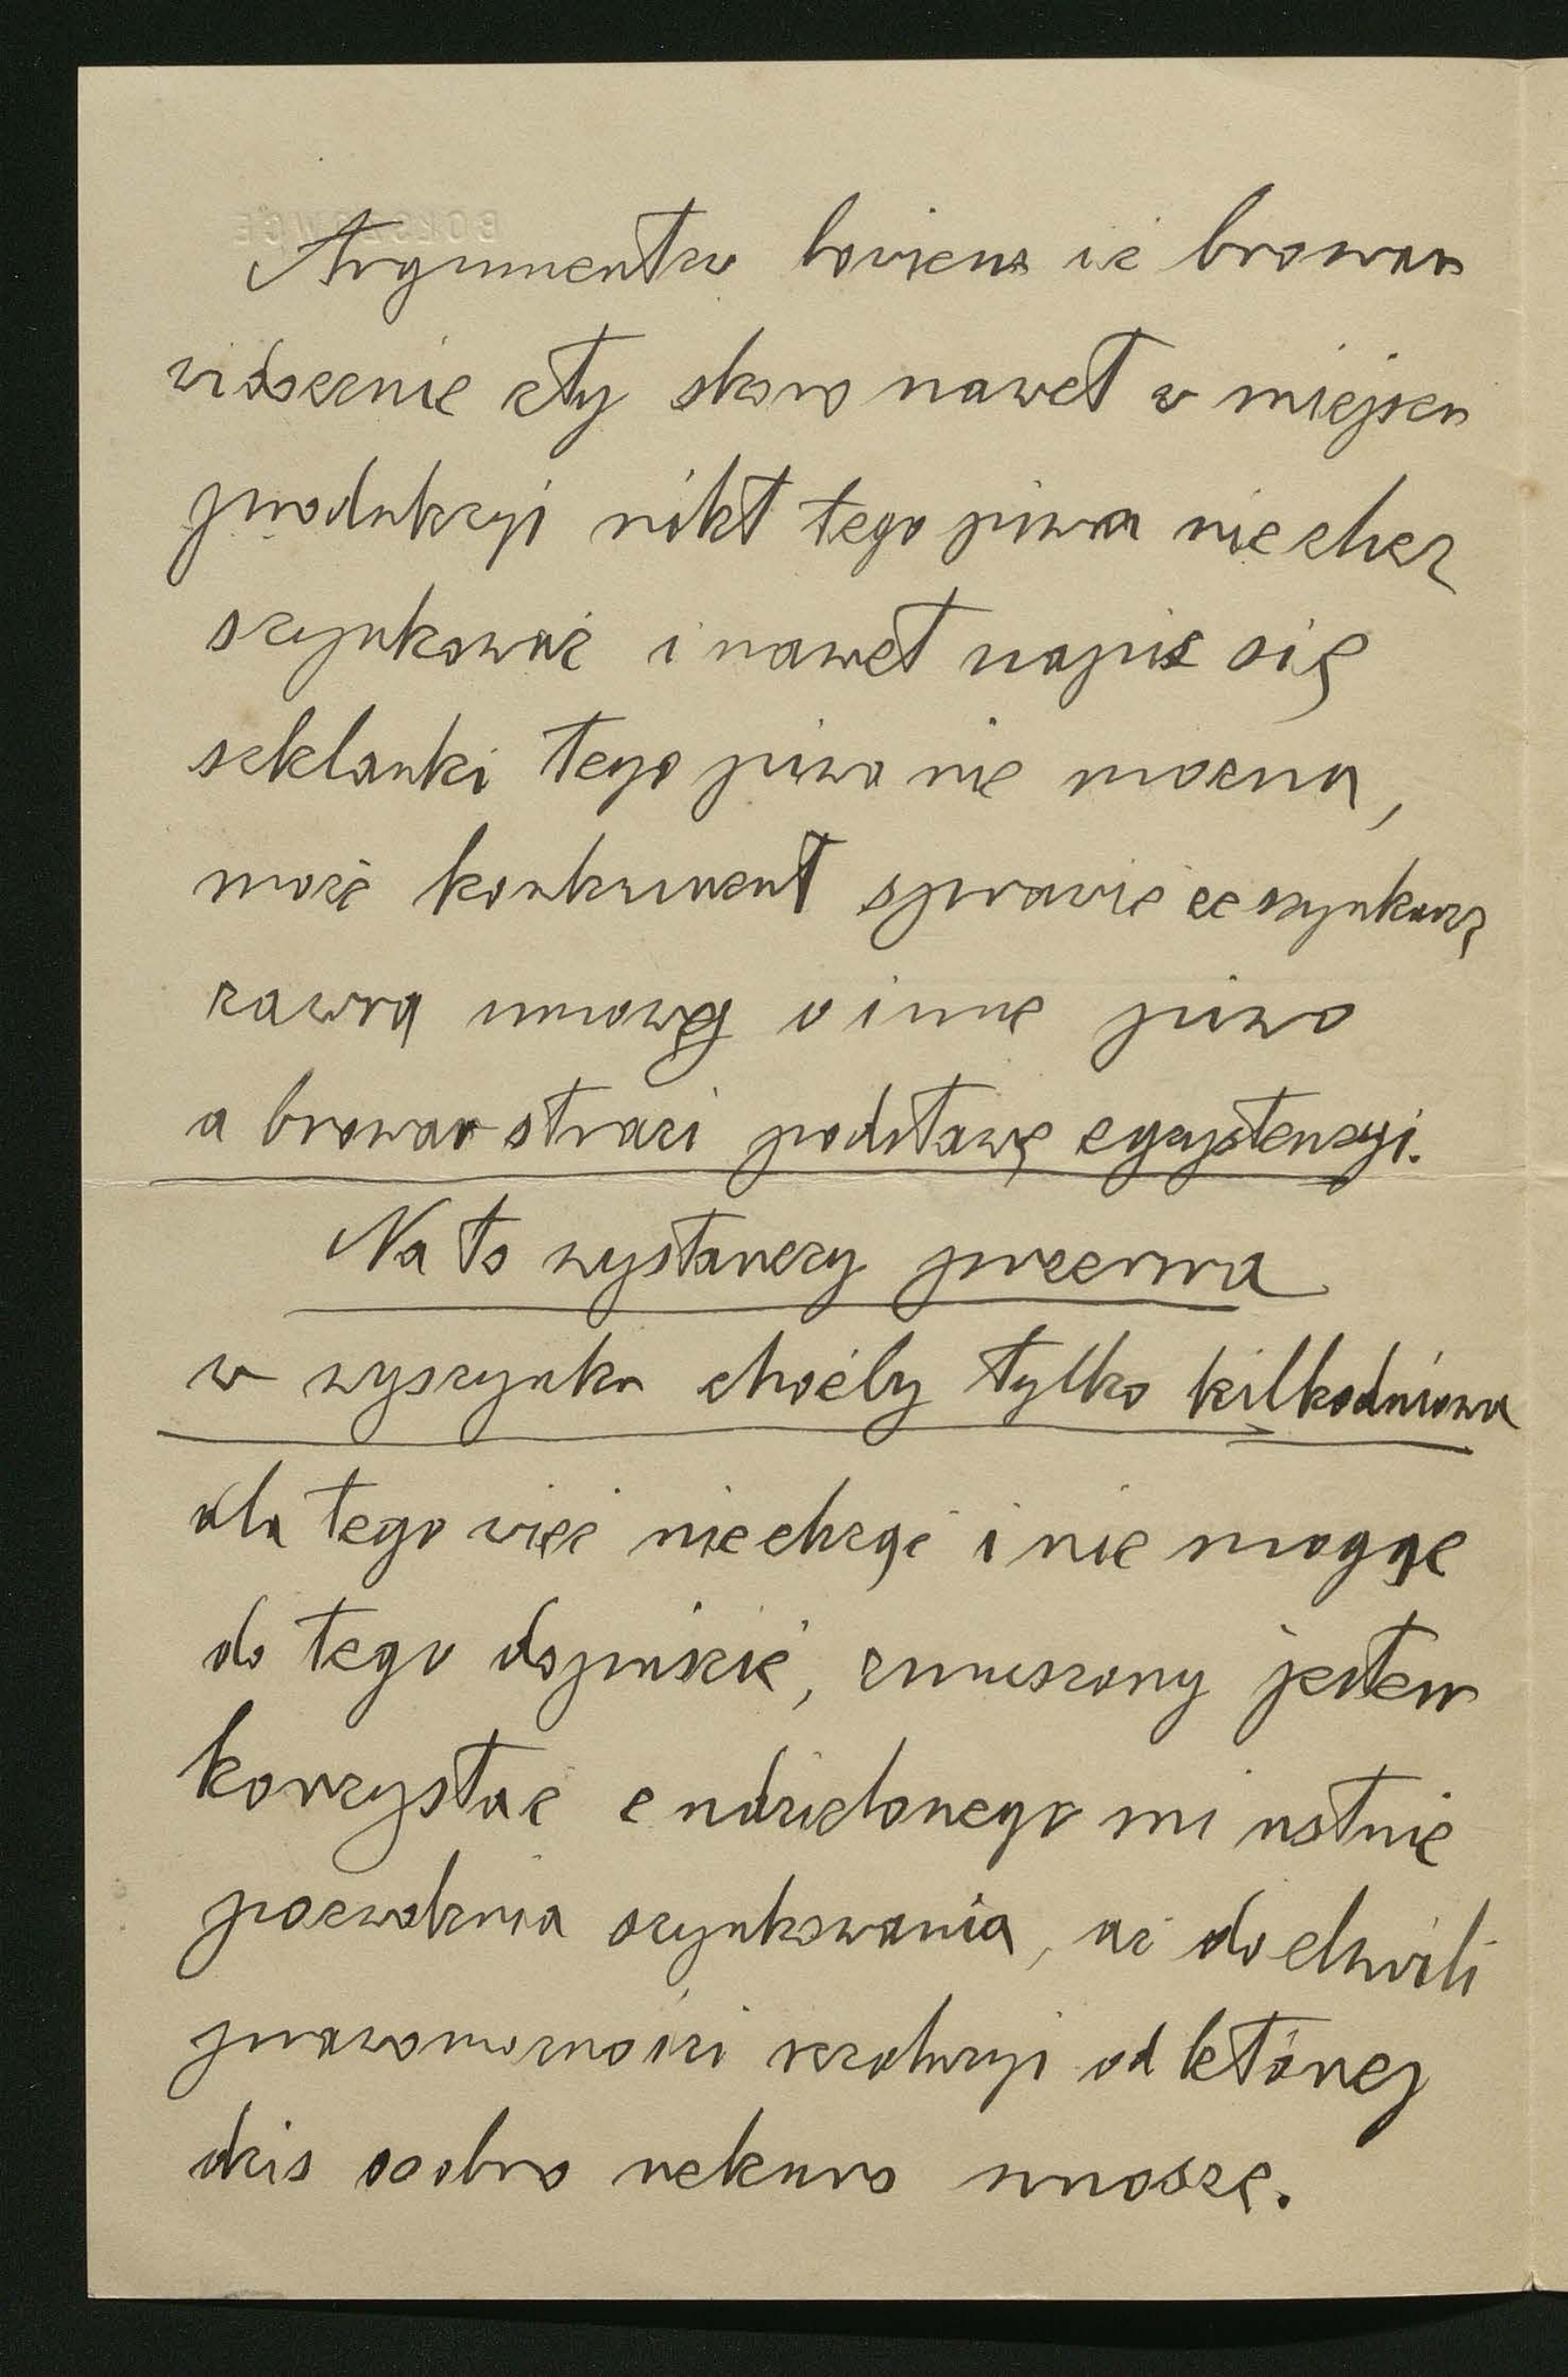 Argumentem bowiem iż browar
widocznie zły skoro nawet w miejscu
produkcyi nikt tego piwa nie chce
szynkować i nawet napić się
szklanki tego piwa nie można,
może konkurent sprawić że szynkarze
zawrą umowę o inne piwo
a browar straci podstawę egzystencyi.
Na to wystarczy przerwa
w wyszynku choćby tylko kilkodniowa
dla tego więc nie chcąc i nie mogąc
do tego dopuścić, zmuszony jestem
korzystać z udzielonego mi ustnie
pozwolenia szynkowania, aż do chwili
prawomocności rezolucyi od której
dziś osobno rekurs wnoszę.